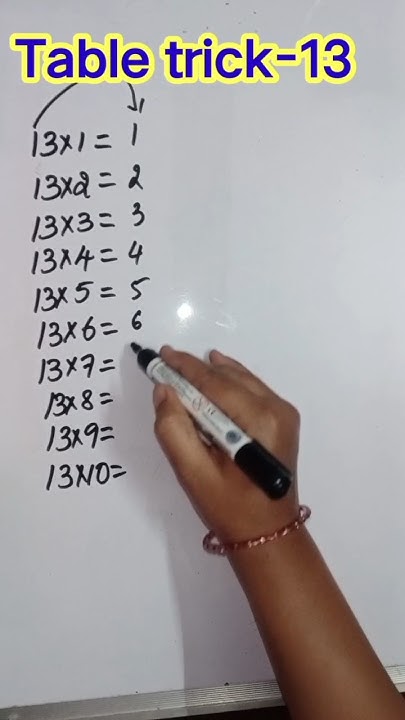 Table trick-13
13×1= 1
13×2= 2
13×3= 3
13×4= 4
13×5= 5
13×6= 6
13×7=
13×8=
13×9=
13×10=